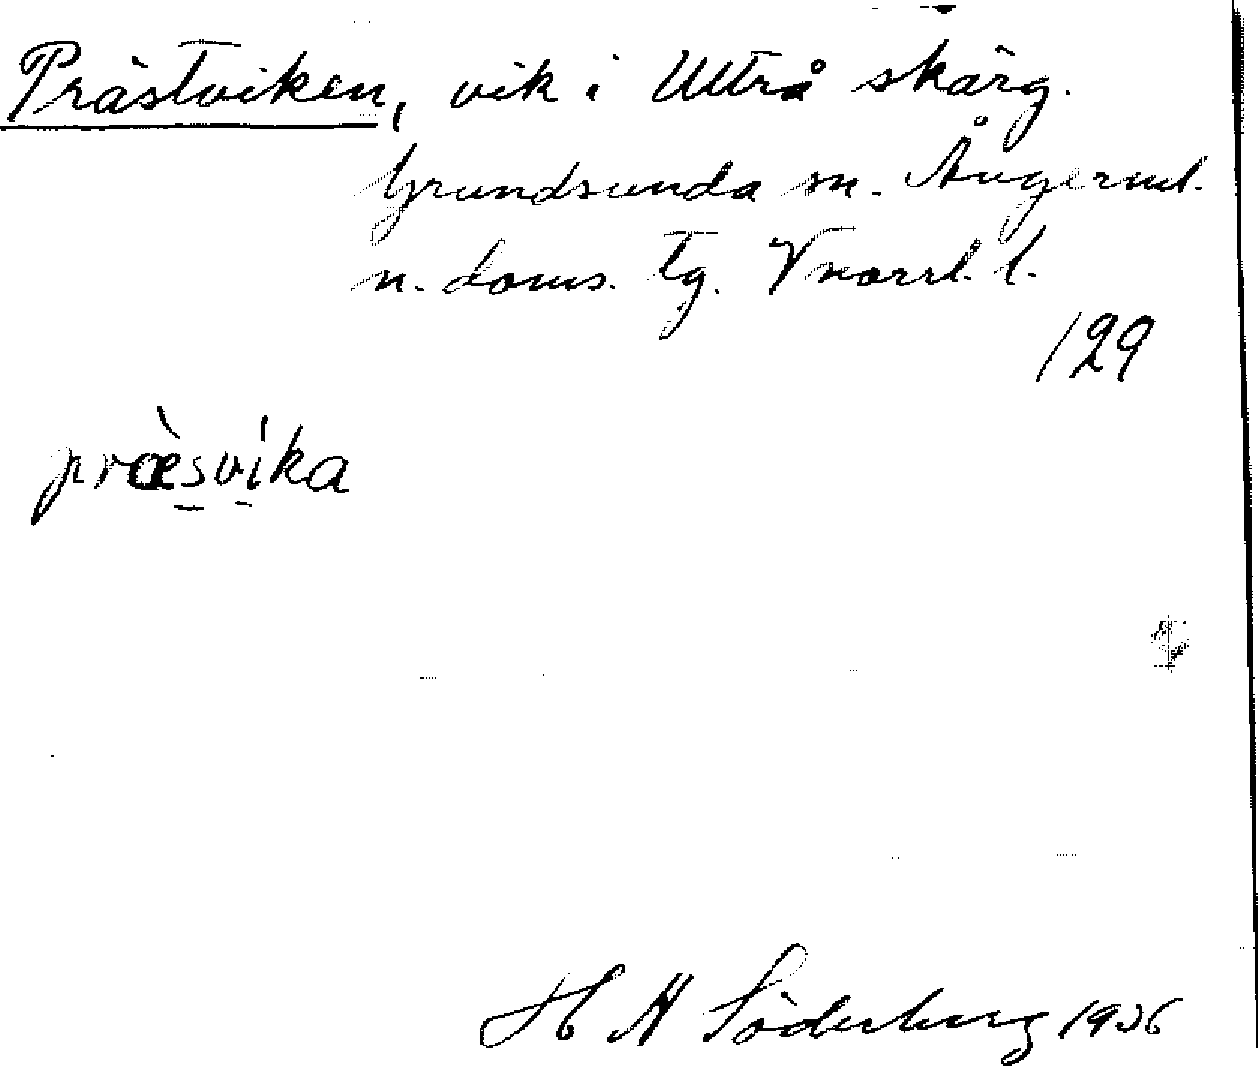 Prästviken, vik i Utrå skärg.
Grundsunda sn. Ångerml.
n. doms. tg. Vnorrl. l.
129
præ̀svika
H A Söderberg 1936